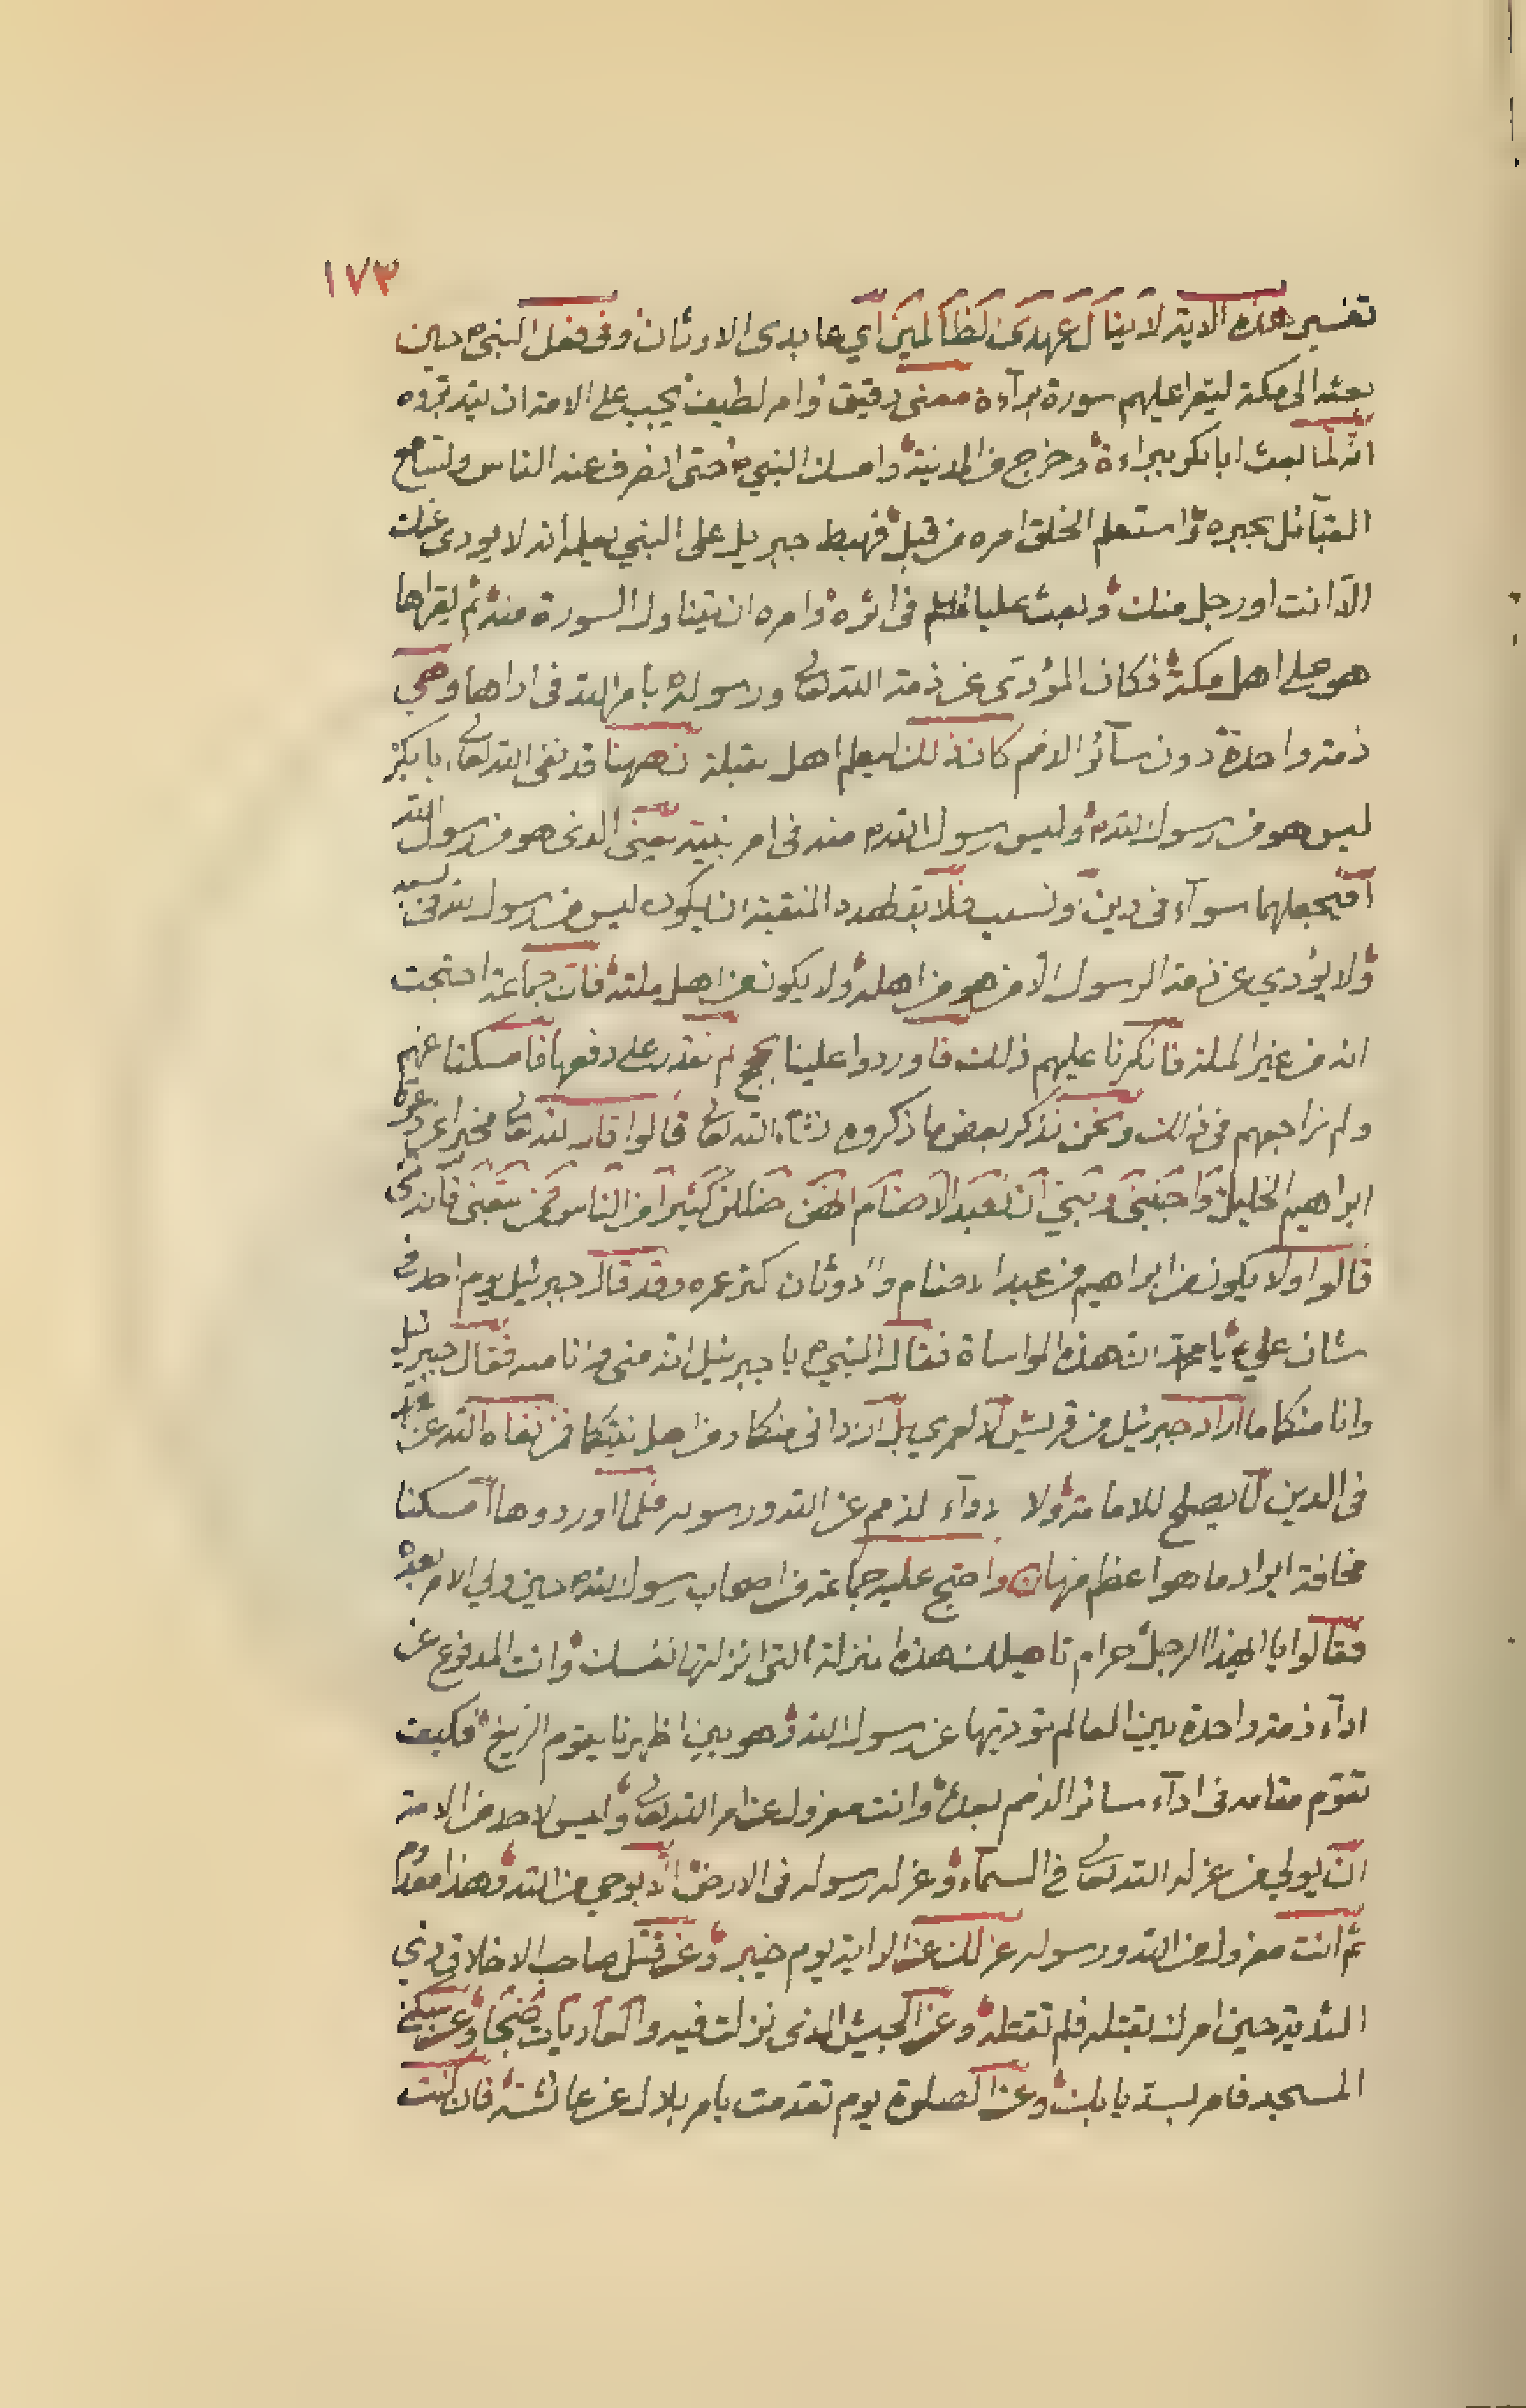 ١٧٣
تفسير هذه الاية لا ينال عهدى الظالمين اي عابدى الاوثان وفى فعل النبى م حين
بعثه الى مكة ليقرا عليهم سورة براءة معنى دقيق وامر لطيف يجب على الامة ان يتدبروه
انه لما بعث ابابكر ببراءة وخرج من المدينة وامسك النبي م حتى انصرف عنه الناس ولتسامع
القبآئل بخبره واستعلم الخلق امره من قبل فهبط جبريل على النبي يعلمه انه لا يودى عنك
الا انت او رجل منك وبعث عليا فى اثره وامره ان يتناول السورة منه ثم يقراها
هو على اهل مكة فكان المؤدى عن ذمة الله تعالى ورسوله بامر الله فى اداها وهي
ذمة واحدة دون سآئر الذمم كان ذلك ليعلم اهل قبلة نصهنا قد نفى الله تعالى بابكر
ليس هو من رسول الله م وليس رسول الله م منه فى امر بنية يعنى الذى هو من رسول الله
افيجعلهما سوآء فى دين ونسب فلا بقطهده المنقبة ان يكون ليس من رسول الله فى نسبه
ولا يؤدي عن ذمة الرسول الا من هو من اهله ولا يكون من اهل ملته فان جماعة احتجت
انه من غير الملة فانكرنا عليهم ذلك فاوردوا علينا بحجج لم نقدر على دفعها فامسكنا عنهم
ولم نراجعهم فى ذلك ونحن نذكر بعض ما ذكروه ان شاء الله تعالى قالوا قال الله تعالى مخبرا عن دعوة
ابراهيم الخليل واجنبني وبني ان نعبد الاصنام انهن اضللن كثيرا من الناس فمن تبعنى فانه منى
قالوا ولا يكون من ابراهيم من عبد الاصنام والاوثان اكثر عمره وقد قال جبرئيل يوم احد فى
شان علي ع يا محمد ان هذه المواساة فقال النبى م يا جبرئيل انه منى وانا منه فقال جبرئيل
وانا منكما ما اراد جبرئيل من قريش لا لعمري بل اراد انى منكما ومن اهل نيتكما فمن نفاه الله عن محمد
فى الدين لا يصلح للامامة ولا اداء لذمم عن الله ورسوله فلما اوردوها امسكنا
مخافة ايراد ما هو اعظم منها واحتج عليه جماعة من اصحاب رسول الله م حين ولي الامر بعده
فقالوا يا ايهذا الرجل حرام تاهيلك هذه المنزلة التى انزلتها نفسك وانت المدفوع عن
ادآء ذمة واحدة بين العالم تؤديها عن رسول الله وهو بين اظهرنا يقوم الزيغ فكيف
تقوم مقامه فى ادآء سائر الذمم بعده وانت معزول عن امر الله تعالى وليس لاحد من الامة
ان يولي من عزله الله تعالى في السمآء وعزله رسوله فى الارض الا بوحي من الله وهذا معدوم
ثم انت معزول من الله ورسوله عزلك عن الراية يوم خيبر وعن قتل صاحب الاخلاق ذي
الثدية حين امرك بقتله فلم تقتله وعن الجيش الذى نزلت فيه والعاديات ضبحا وعن سكنى
المسجد فامر بسد بابك وعن الصلوة يوم تقدمت بامر بلال عن عائشة فان كنت